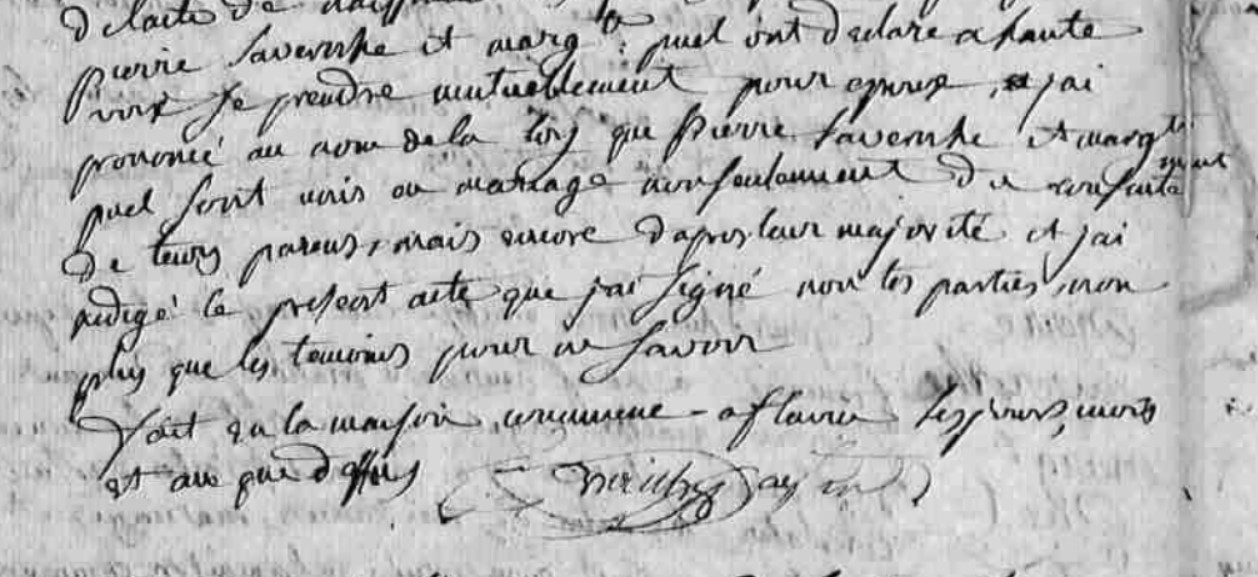 de l'acte de
pierre Lavernhe et marg te puel ont declare a haute
voix se prendre mutuellement pour epoux, et jai
prononcé au nom de la loy que pierre Lavernhe et marg te
puel sont unis en mariage non seulement du consente ment
de leurs parens, mais encore dapres leur majorité et jai
redigé le present acte que jai signé non les parties non
plus que les temoins pour ne savoir
fait en la maison commune a flavin les jours, mois
et an que dessus